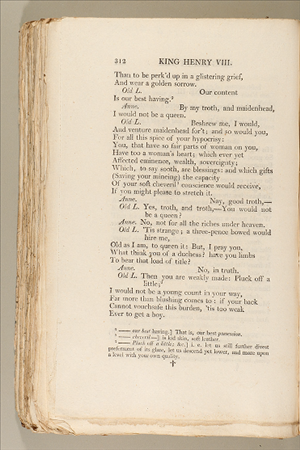 312 KING HENRY VIII.
Than to be perk'd up in a glistering grief,
And wear a golden sorrow.
Old L. Our content
Is our best having.⁹
Anne. By my troth, and maidenhead,
I would not be a queen.
Old L. Beshrew me, I would,
And venture maidenhead for't; and so would you,
For all this spice of your hypocrisy:
You, that have so fair parts of woman on you,
Have too a woman's heart; which ever yet
Affected eminence, wealth, sovereignty;
Which, to say sooth, are blessings: and which gifts
(Saving your mincing) the capacity
Of your soft cheveril conscience would receive,
If you might please to stretch it.
Anne. Nay, good troth,—
Old L. Yes, troth, and troth,—You would not
be a queen?
Anne. No, not for all the riches under heaven.
Old L. 'Tis strange; a three-pence bowed would
hire me,
Old as I am, to queen it: But, I pray you,
What think you of a duchess? have you limbs
To bear that load of title?
Anne. No, in truth.
Old L. Then you are weakly made: Pluck off a
little;
I would not be a young count in your way,
For more than blushing comes to: if your back
Cannot vouchsafe this burden, 'tis too weak
Ever to get a boy.
⁹ —— our best having.] That is, our best possession.
—— cheveril—] is kid skin, soft leather.
—— Pluck off a little; &c.] i. e. let us still further divest
preferment of its glare, let us descend yet lower, and more upon
a level with your own quality.